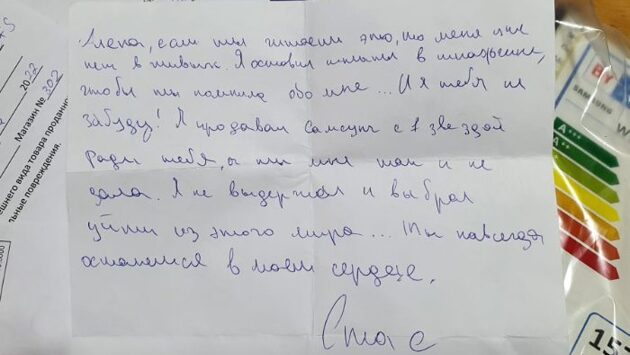 Лена, если ты читаешь это, то меня уже
нет в живых. Я оставил в
чтобы ты помнила обо мне... И я тебя не
забуду! Я продавал Самсунг с 1 звездой
ради тебя, а ты мне так и не
дала. Я не выдержал и выбрал
уйти из этого мира... Ты навсегда
останешся в моем сердце.
Стас
2022
Магазин № 202
внешнего вида товара продавно
льные повреждения.
BY
SAMSUNG
A
157